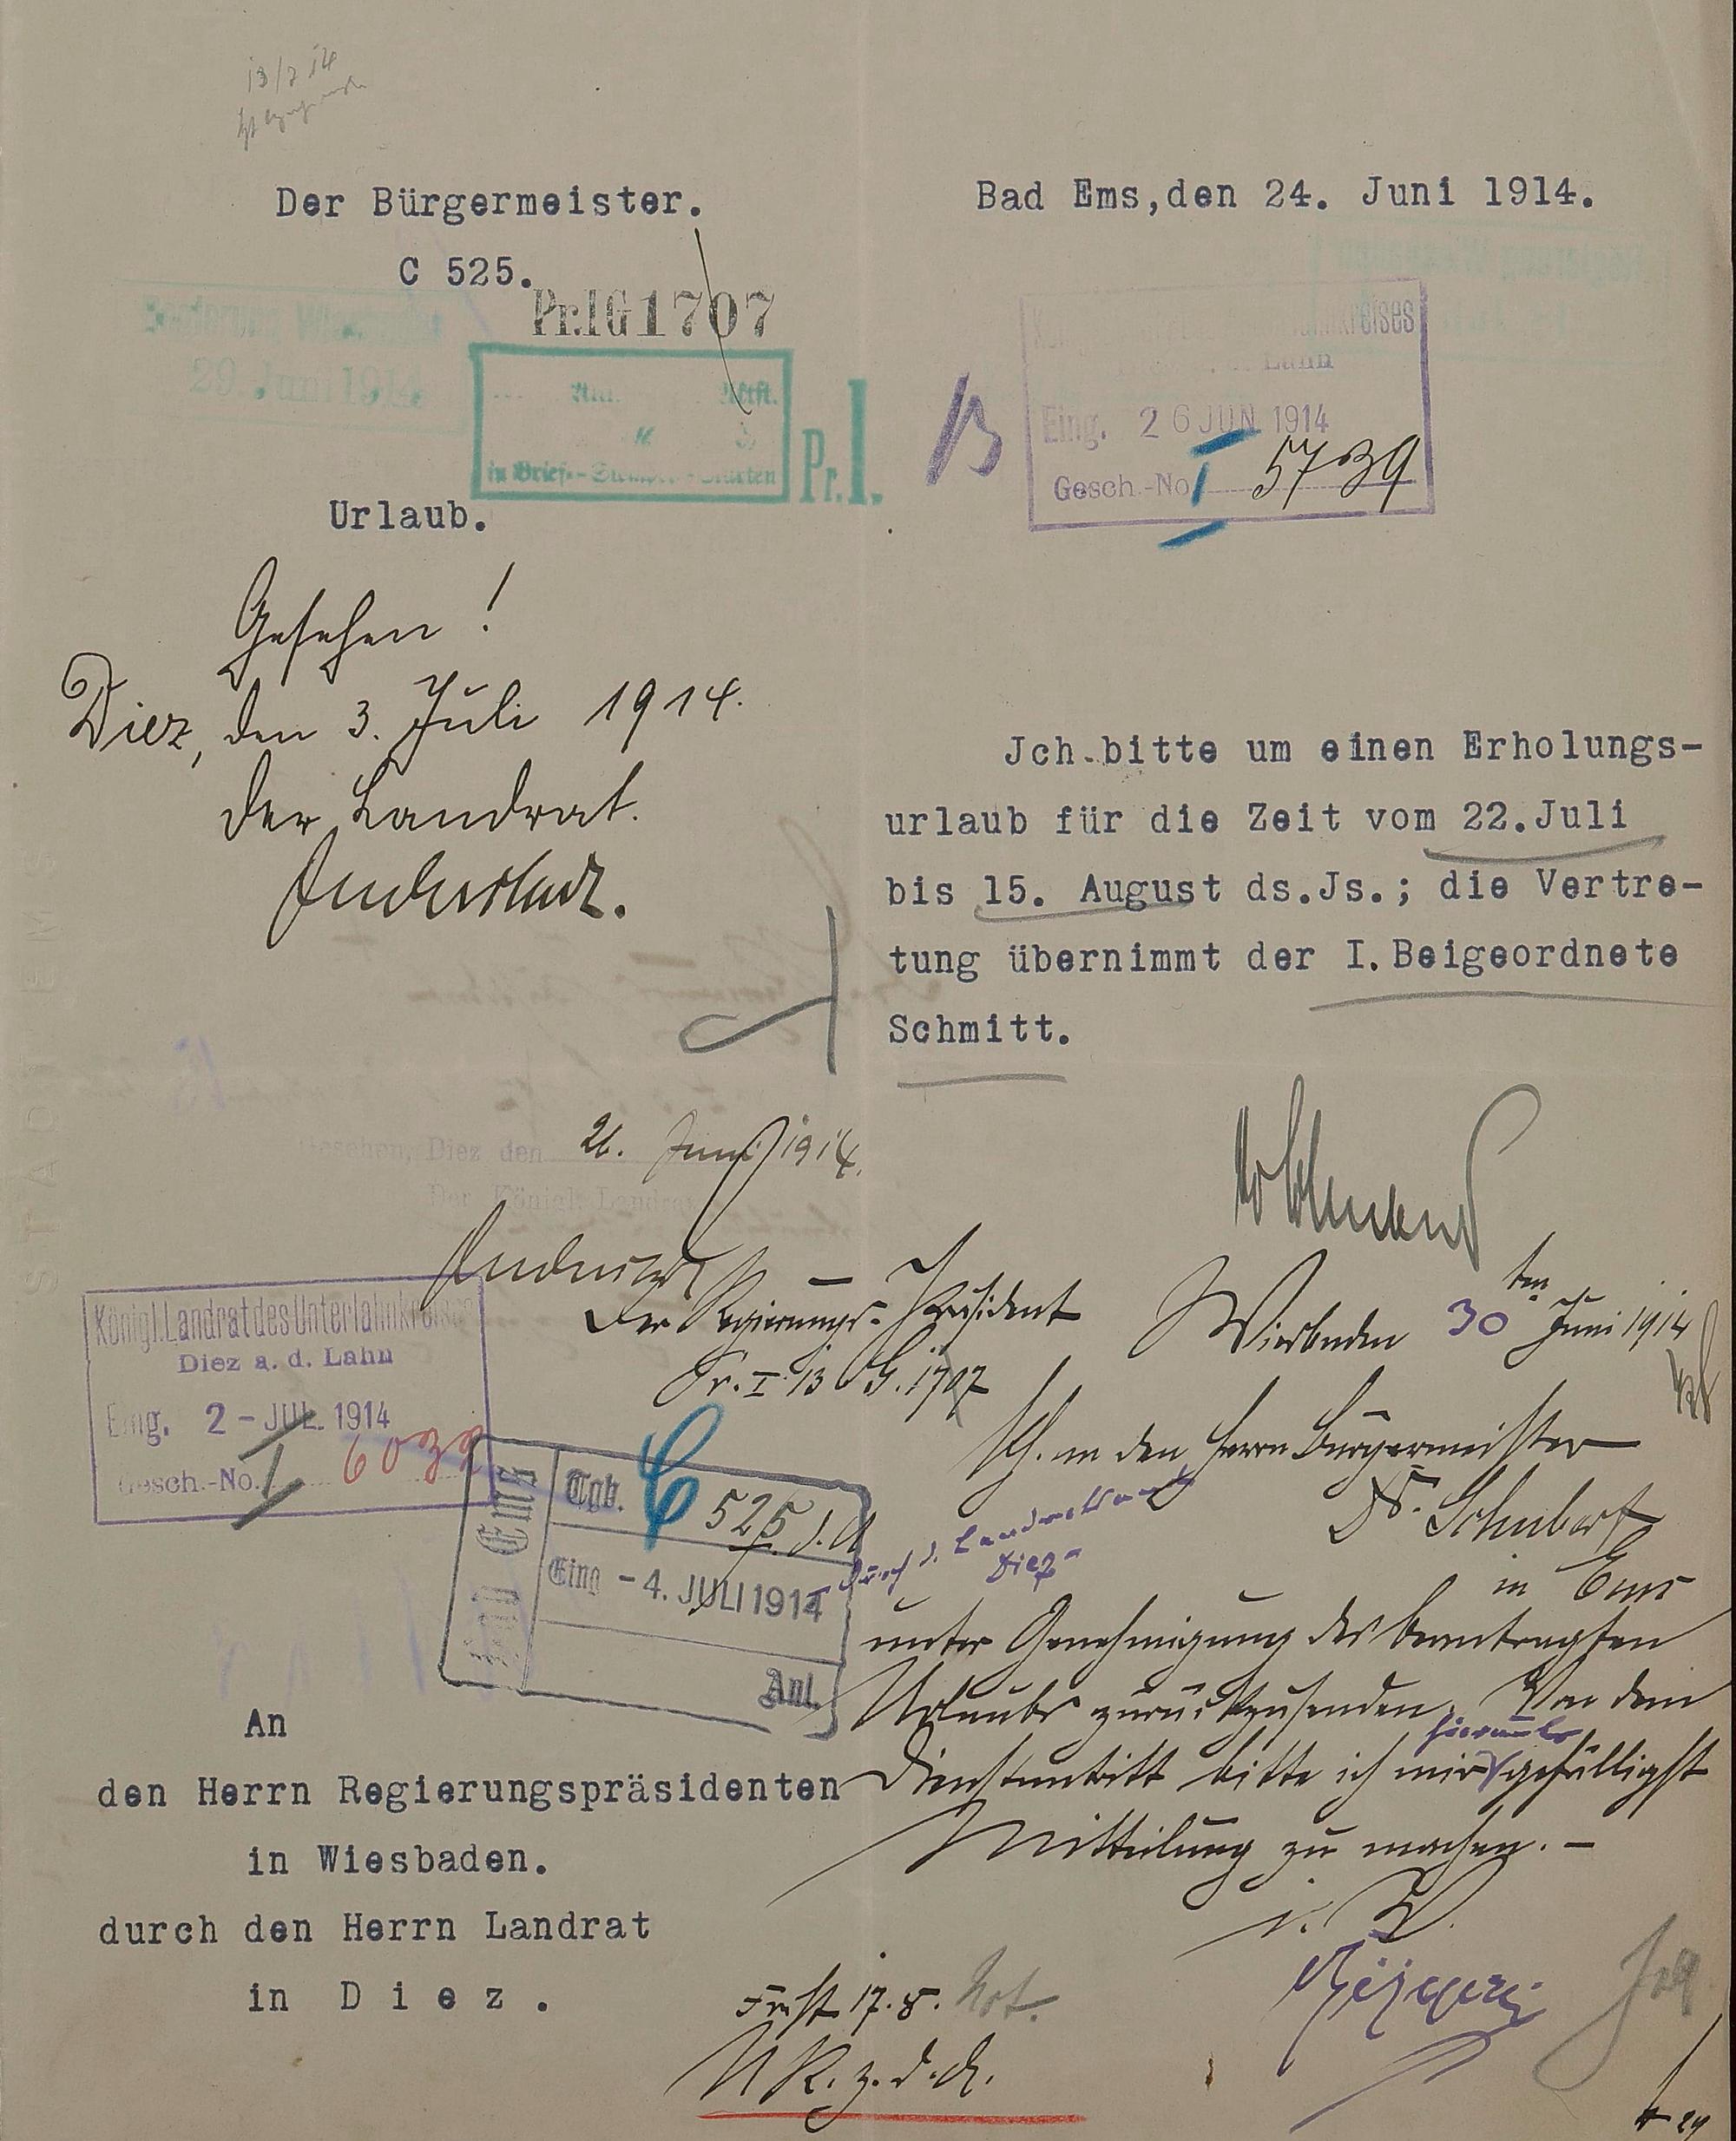 13/7 14
Der Bürgermeister.
C 525.
Bad Ems,den 24. Juni 1914.
Pr.IG1707
29. Juni 1914
in Brief-
Pr.I.
B
Lahn
Eing. 26 JUN 1914
Gesch.-No I 5739
Urlaub.
Gesehen!
Diez, den 3. Juli 1914.
Der Landrat.
Jch bitte um einen Erholungs-
urlaub für die Zeit vom 22.Juli
bis 15. August ds.Js.; die Vertre-
tung übernimmt der I.Beigeordnete
Schmitt.
Gesehen, Diez den 26. Juni 1914.
Der Königl. Landrat
Der Regierungs-Präsident
Pr. I 13 G. 1707
Wiesbaden 30ten Juni 1914
Königl.Landrat des Unterlahnkreises
Diez a. d. Lahn
Eing. 2-JUL. 1914
Gesch.-No. I
an den Herrn Bürgermeister
Dr. Schubert
in Ems
durch d. Landratsamt
Diez
BAD EMS
Tgb. C 525
Eing -4. JULI 1914
Anl.
unter Genehmigung des beantragten
Urlaubs zurückzusenden. Von dem
Dienstantritt bitte ich mir hierneben gefälligst
Mitteilung zu machen. -
i. V.
An
den Herrn Regierungspräsidenten
in Wiesbaden.
durch den Herrn Landrat
in Diez.
Frist 17.8. Not.
STADT EMS